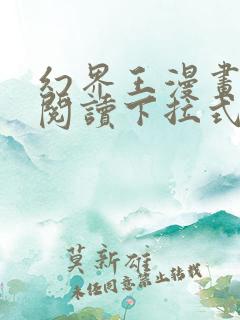 幻界王漫畫
閱讀下拉式
莫新雄
未經同意禁止轉載